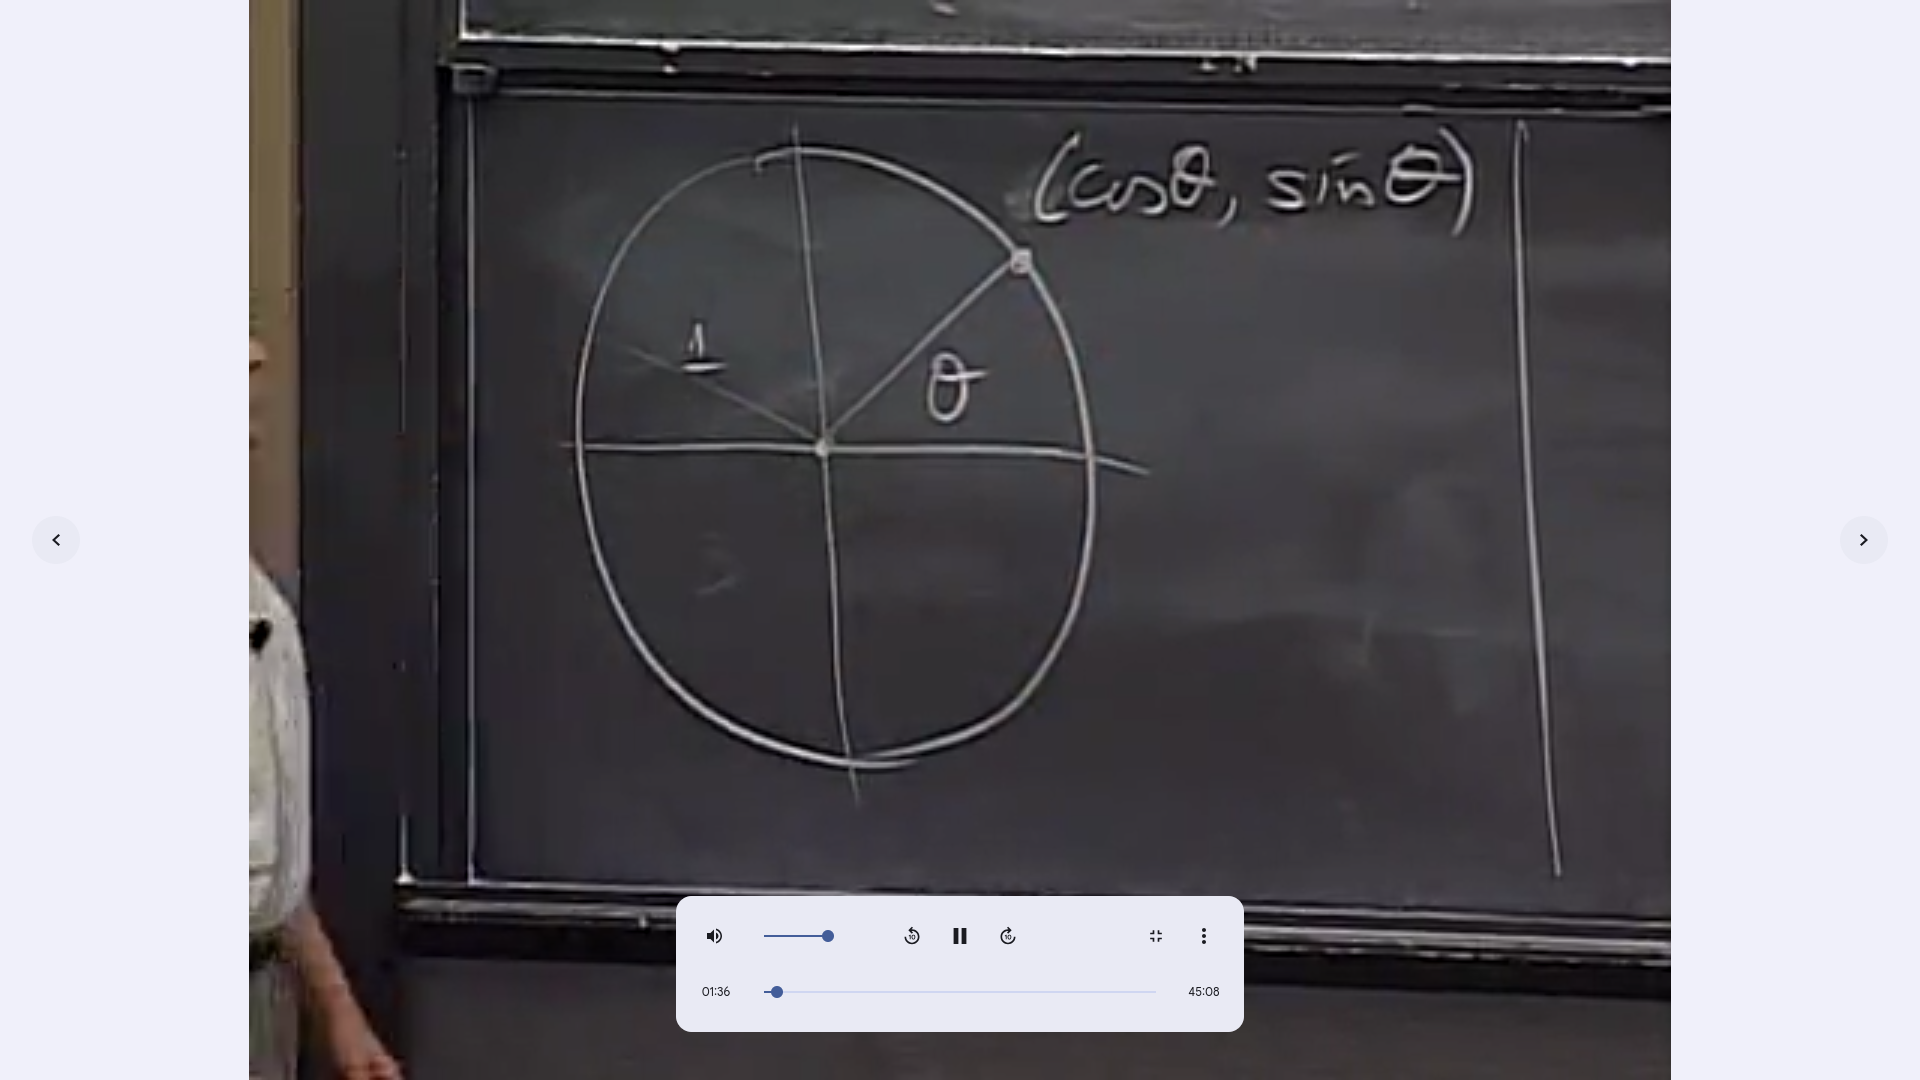 (cosθ, sinθ)
1
θ
10
10
01:36
45:08